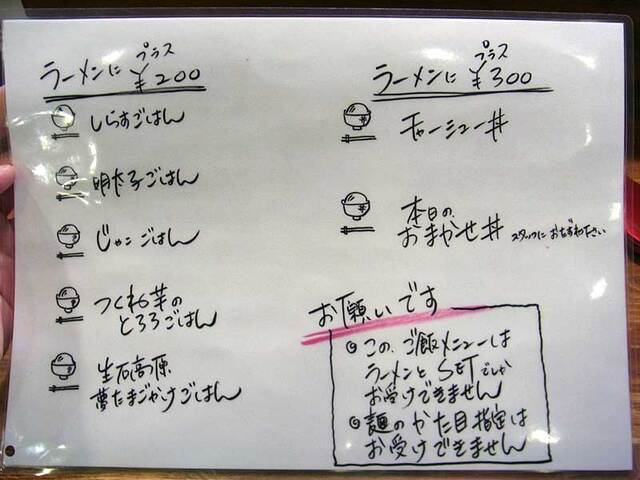 プラス
ラーメンに ¥200
しらすごはん
明太子ごはん
じゃこごはん
つくね芋の
とろろごはん
生石高原
夢たまごかけごはん
プラス
ラーメンに ¥300
チャーシュー丼
本日の
おまかせ丼 スタッフにおたずね下さい
お願いです
◎この、ご飯メニューは
ラーメンとSETでしか
お受けできません
◎麺のかため指定は
お受けできません